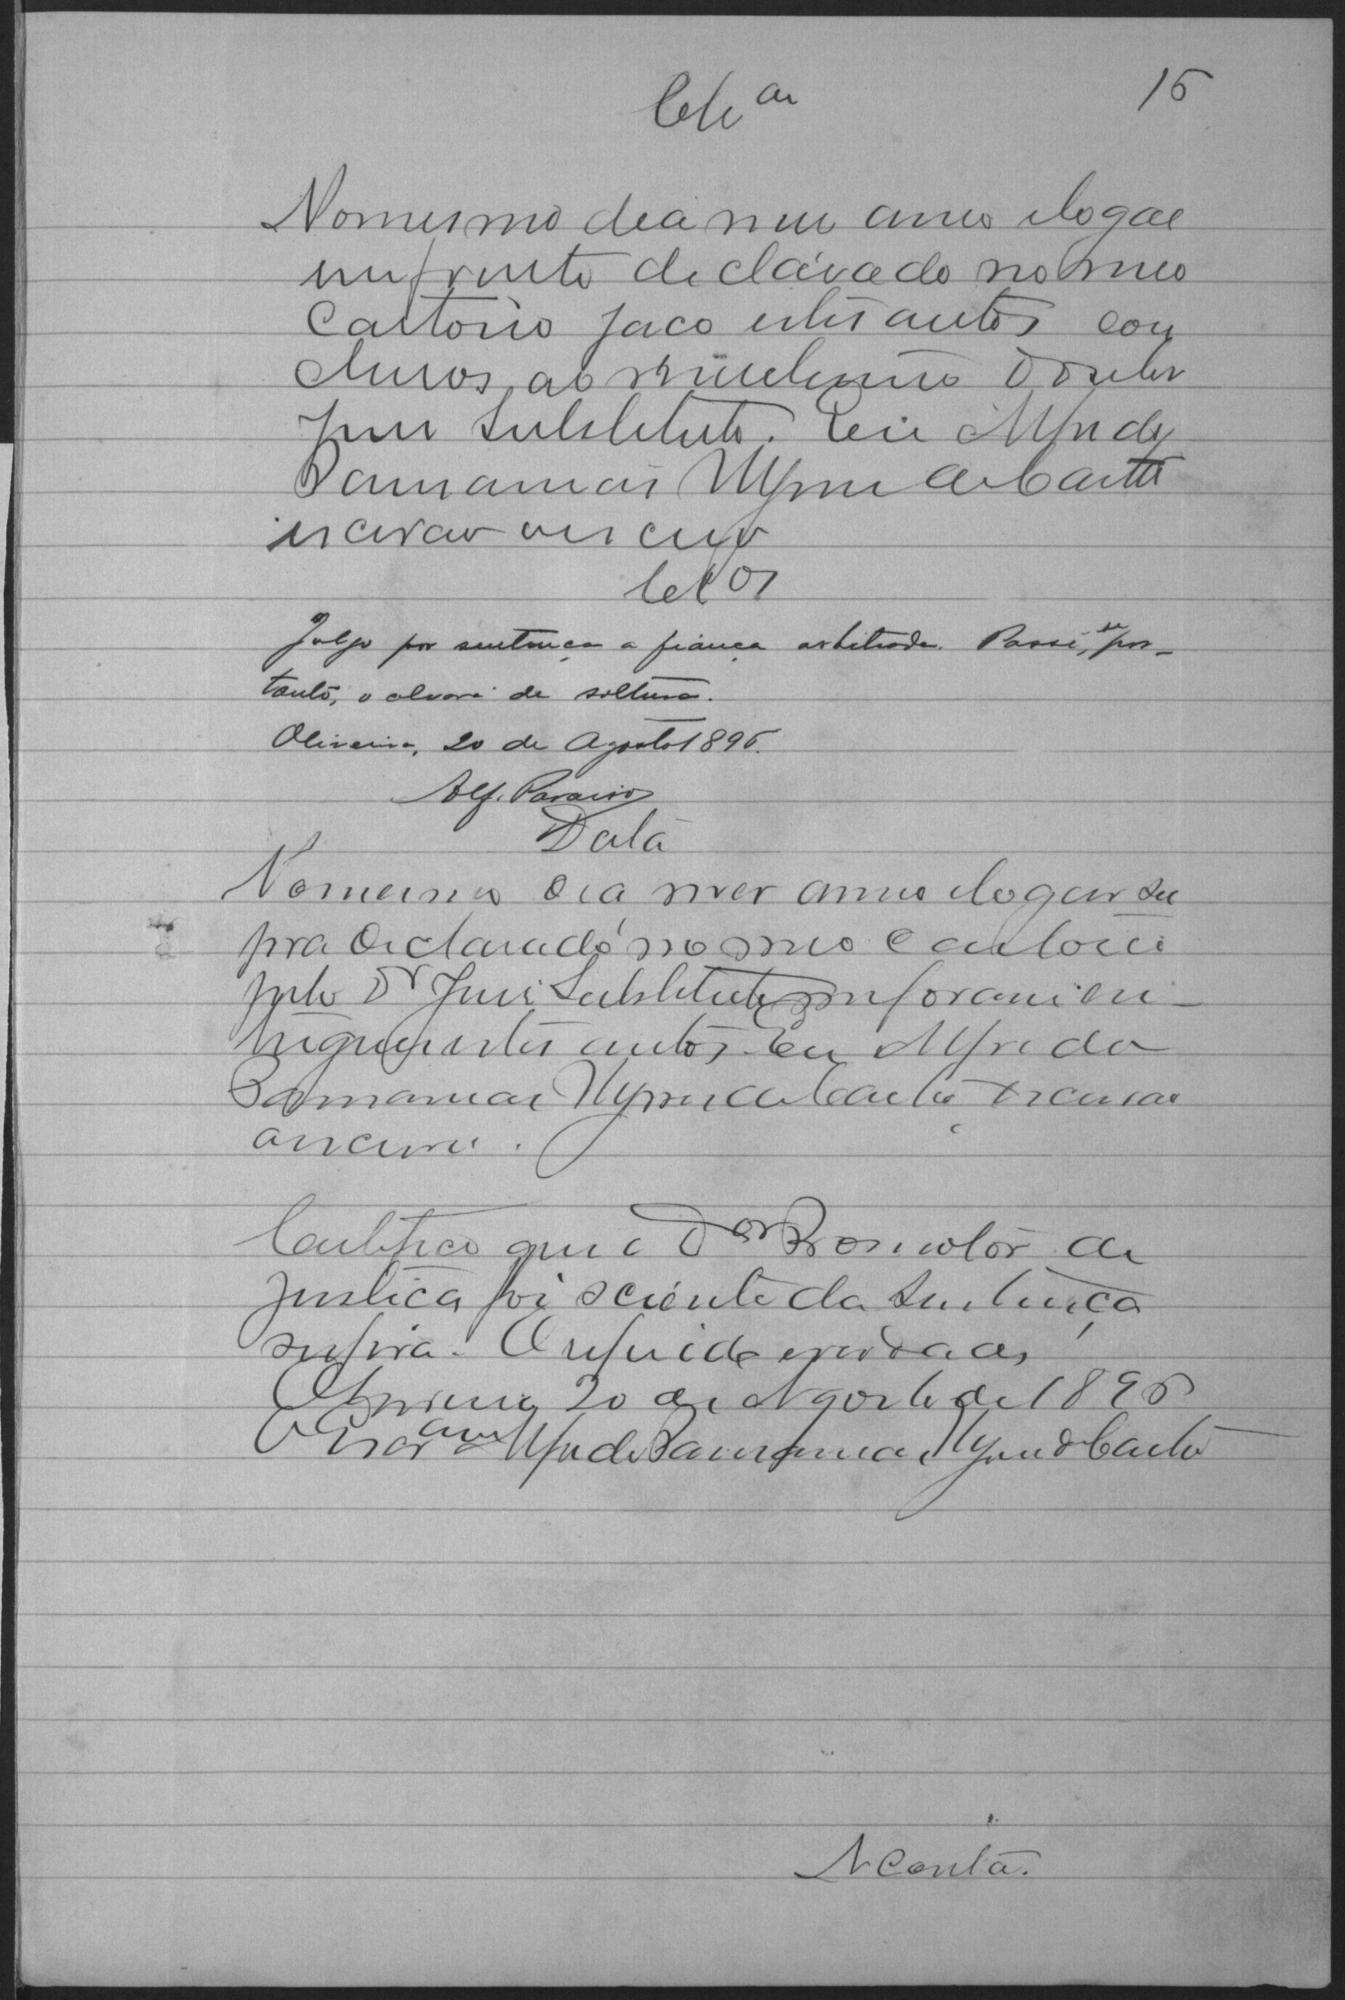 15
Cls.am
No mesmo dia mez anno e logar
em frente declarado no meo
Cartorio faço estes autos con
clusos ao meretissimo Doutor
Juiz Substituto. Eu Alfredo
de Castro
escrivão escrevy
Cls.os
Julgo por sentença a fiança arbitrada. Passe-se, por-
tanto, o alvará de soltura.
Oliveira, 20 de Agosto 1896.
Alf. Paraiso
Data
No mesmo dia mez anno e logar su
pra declarado no meo Cartorio
pelo Dr. Juiz Substituto me foram en-
tregues estes autos. Eu Alfredo
de Castro escrivão
o escrevi.
Certifico que o Dor Promotor de
Justiça foi sciente da sentença
supra. O referido é verdade,
Oliveira 20 de Agosto de 1896
O Escram Alfredo de Castro
A Conta.